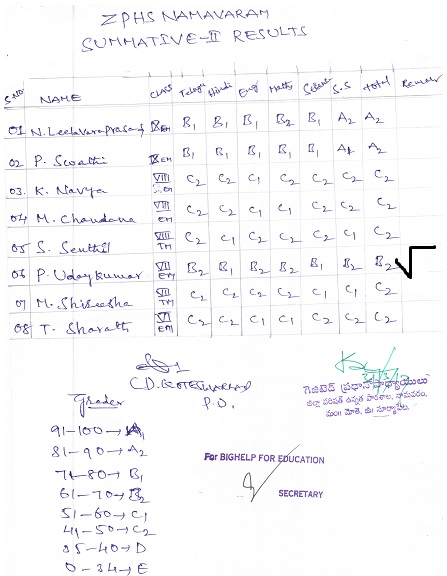 ZPHS NAMAVARAM
SUMMATIVE-II RESULTS
S.NO NAME CLASS Telugu Hindi Eng Maths Science S.S Total Remar
01 N. Leelavaraprasad EM B1 B1 B1 B2 B1 A2 A2
02 P. Swathi EM B1 B1 B1 B1 B1 A2
03. K. Navya VIII EM C2 C2 C1 C2 C2 C2 C2
04 M. Chandana VIII EM C2 C2 C1 C1 C2 C2 C2
05 S. Senthil VIII TM C2 C1 C2 C2 C2 C1 C2
06 P. Udaykumar VII EM B2 B1 B2 B2 B1 B2 B2 √
07 M. Shireesha VII TM C2 C2 C2 C2 C1 C1 C2
08 T. Sharath VII EM C2 C2 C1 C1 C2 C2 C2
C.D. KOTESWARRAO
P.D.
Grades
91-100→A1
81-90→A2
71-80→B1
61-70→B2
51-60→C1
41-50→C2
35-40→D
0-34→E
గెజిటెడ్ ప్రధానోపాధ్యాయులు
జిల్లా పరిషత్ ఉన్నత పాఠశాల, నామవరం,
మం॥ మోతె, జి॥ సూర్యాపేట.
For BIGHELP FOR EDUCATION
SECRETARY